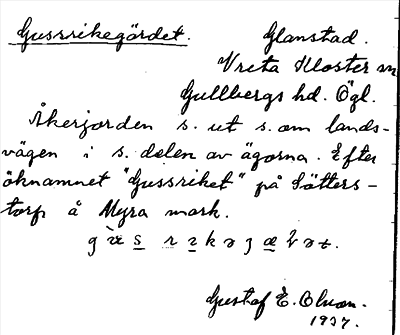 Gussrikegärdet.
Glanstad.
Vreta Kloster sn
Gullbergs hd. Ögl.
Åkerjorden s. ut s. om lands-
vägen i s. delen av ägorna. Efter
öknamnet "Gussriket" på Sätters-
torp å Myra mark.
Gustaf E. Olson.
1937.